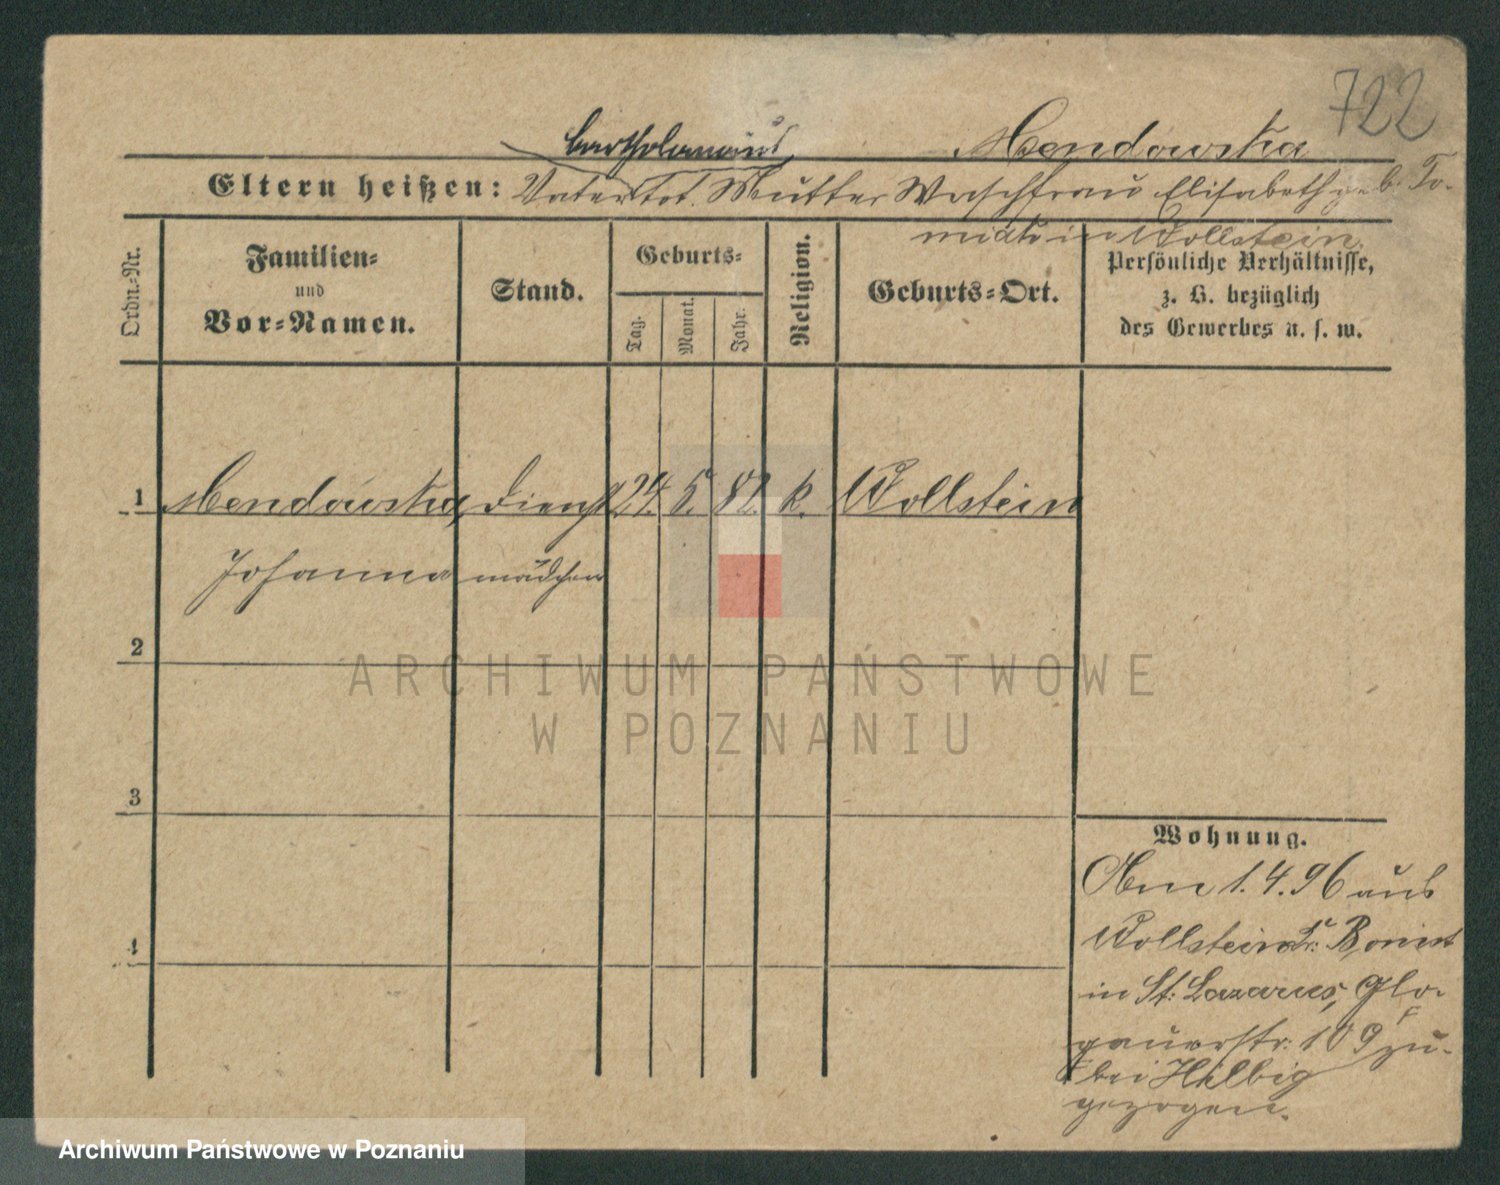 722
Bartholomäus Mendowska
Eltern heißen: Vater tot. Mutter Waschfrau Elisabeth geb. To-
miak in Wollstein.
Ordn.-Nr.
Familien-
und
Vor-Namen.
Stand.
Geburts-
Tag.
Monat.
Jahr.
Religion.
Geburts-Ort.
Persönliche Verhältnisse,
z. B. bezüglich
des Gewerbes u. s. w.
1 Mendowska, Dienst 24. 5. 82. k. Wollstein
Johanna mädchen
2
3
4
Wohnung.
Am 1.4.96 aus
Wollstein Kr. Bomst
in St. Lazarus, Glo-
gauerstr. 109 zu-
bei Hilbig
gezogen.
ARCHIWUM PAŃSTWOWE
W POZNANIU
Archiwum Państwowe w Poznaniu